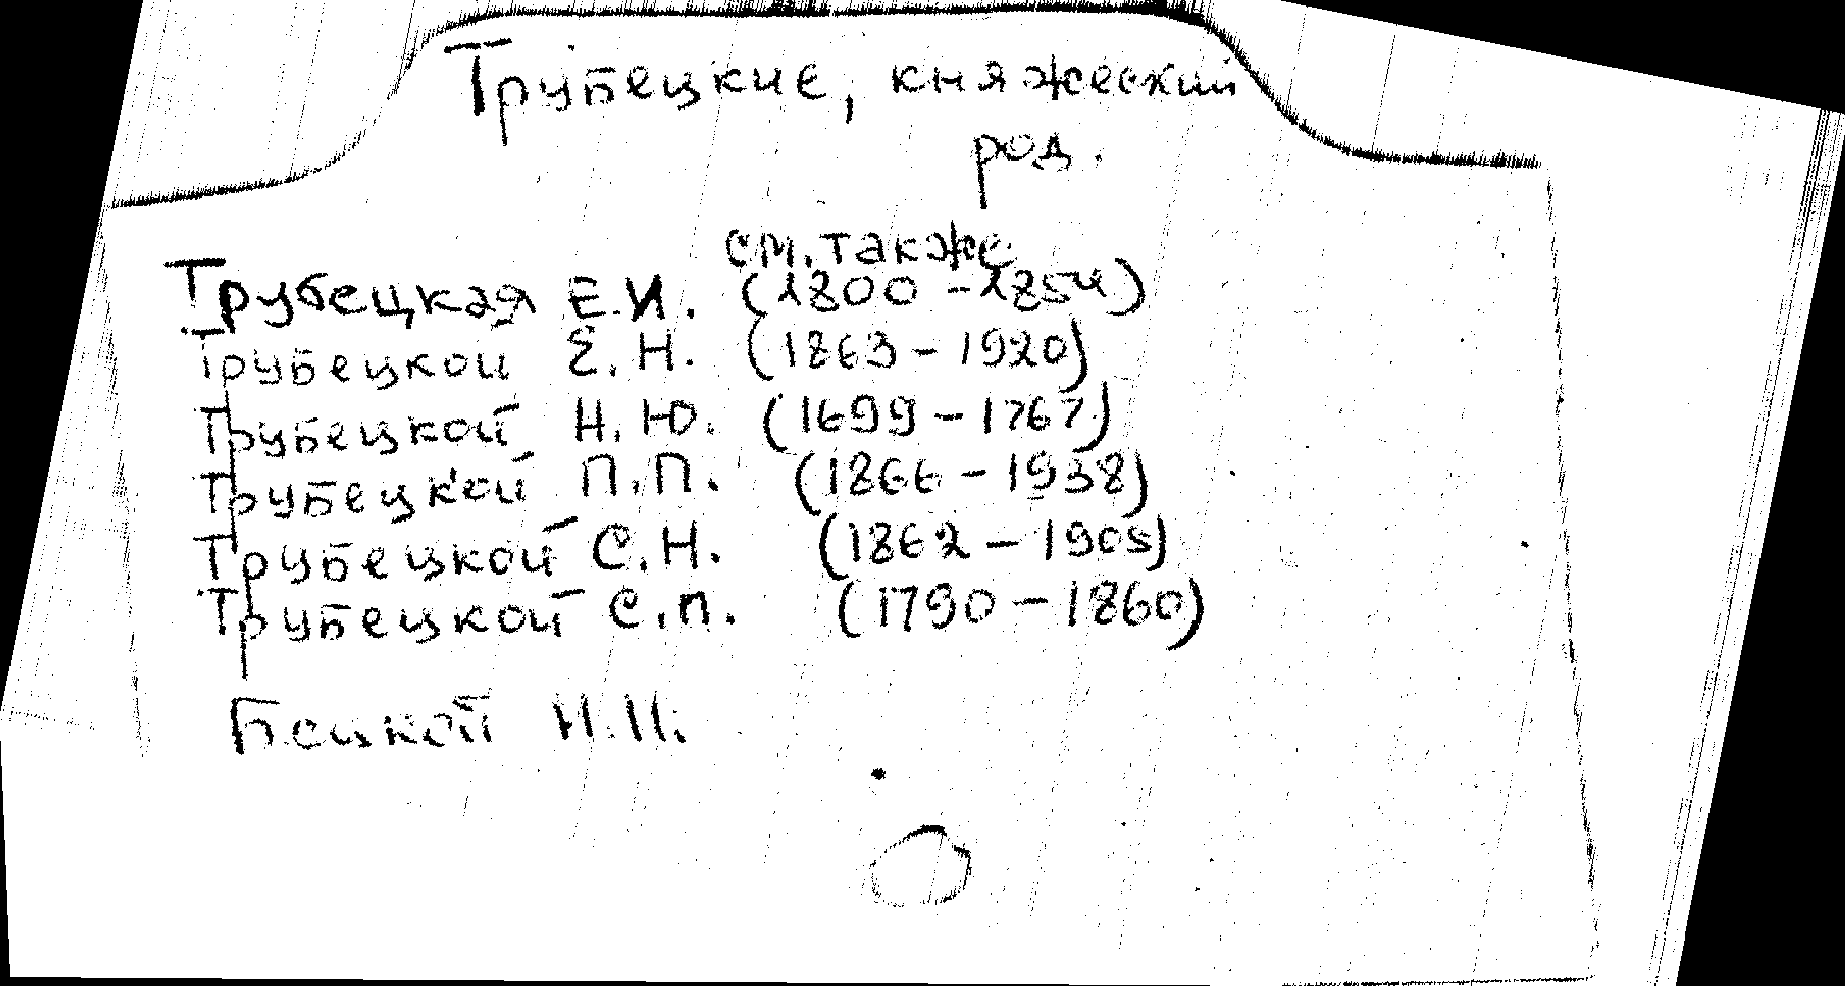 Трубецкие, княжеский
род.
см. также
Трубецкая Е.И. (1800-1854)
Трубецкой Е.Н. (1863-1920)
Трубецкой Н.Ю. (1699-1767)
Трубецкой П.П. (1866-1938)
Трубецкой С.Н. (1862-1905)
Трубецкой С.П. (1790-1860)
Бецкой И.И.